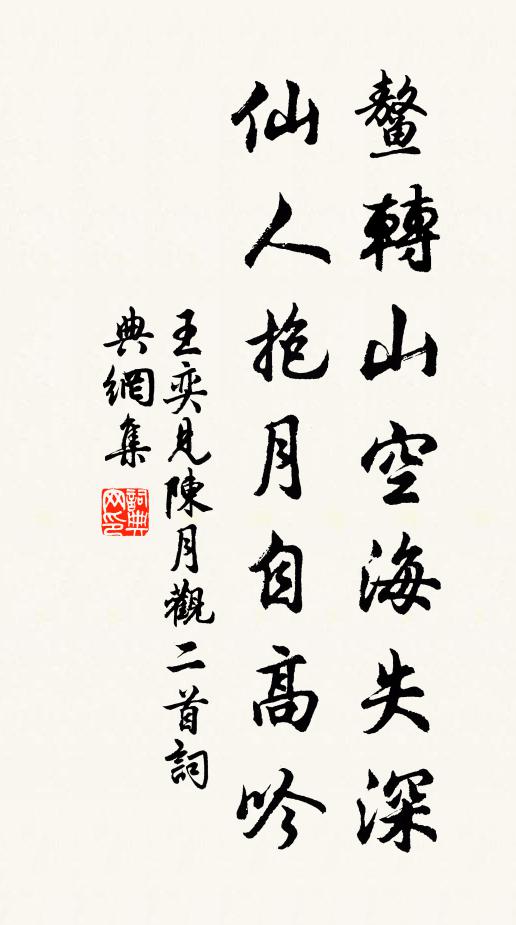 鰲轉山空海失深
仙人抱月自高吟
王奕見陳月觀二首詞
典網集
詞典
网印